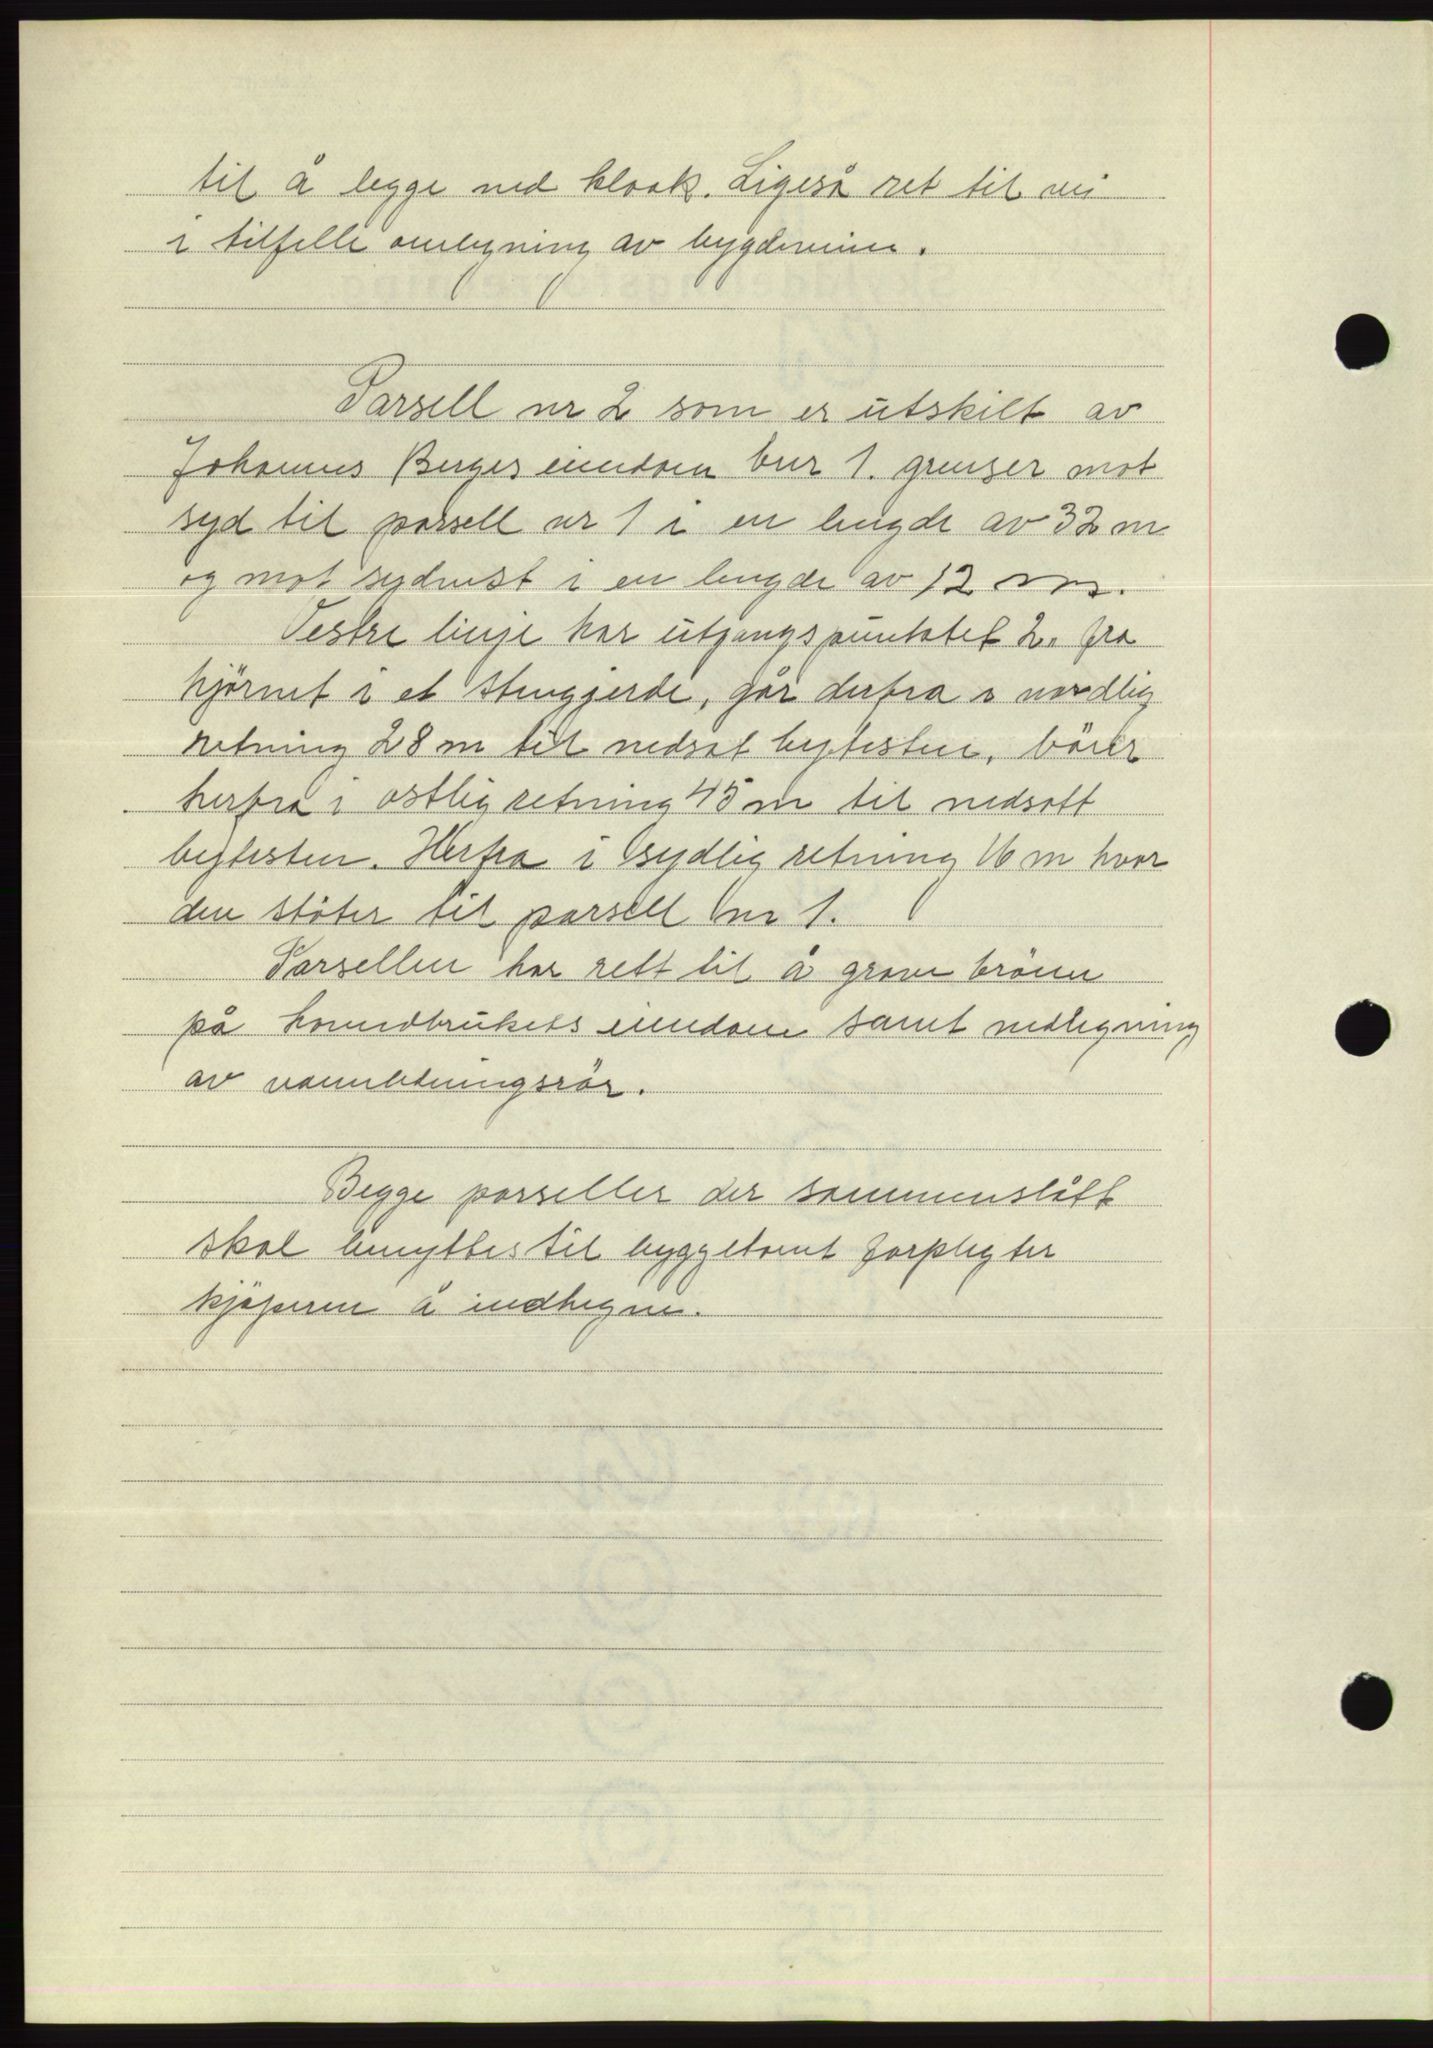 til å legge ned kloak. Ligeså ret til vei
i tilfelle omlegning av bygdeveien.
Parsell nr 2 som er utskilt av
Johannes Berges eiendom bnr 1. grenser mot
syd til parsell nr 1 i en lengde av 32 m
og mot sydvest i en lengde av 12 m.
Vestre linje har utgangspunktet 2. fra
hjörnet i et stengjerde, går derfra i nordlig
retning 28 m til nedsat bytesten, böier
herfra i östlig retning 45 m til nedsatt
bytesten. Herfra i sydlig retning 16 m hvor
den stöter til parsell nr 1.
Parsellen har rett til å grave brönn
på hovedbrukets eiendom samt nedlegning
av vannledningsrör.
Begge parseller der sammenslått
skal benyttes til byggetomt forpligter
kjöperen å indhegne.